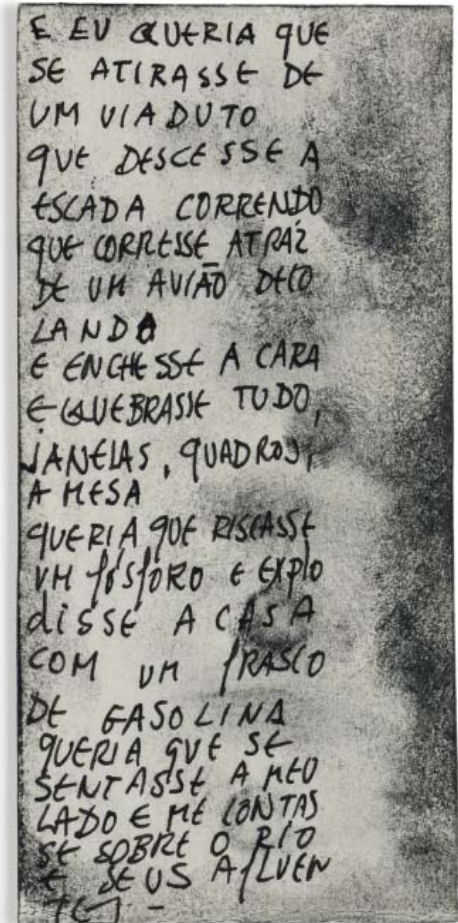 E EU QUERIA QUE
SE ATIRASSE DE
UM VIADUTO
QUE DESCESSE A
ESCADA CORRENDO
QUE CORRESSE ATRAZ
DE UM AVIÃO DECO
LANDO
E ENCHESSE A CARA
E QUEBRASSE TUDO,
JANELAS, QUADROS,
A MESA
QUERIA QUE RISCASSE
UM fósforo E EXPlO
diSSE A CASA
COM UM FRASCO
DE GASOLINA
QUERIA QUE SE
SENTASSE A MEU
LADO E ME CONTAS
SE SOBRE O RIO
E SEUS AFLUEN
TES -